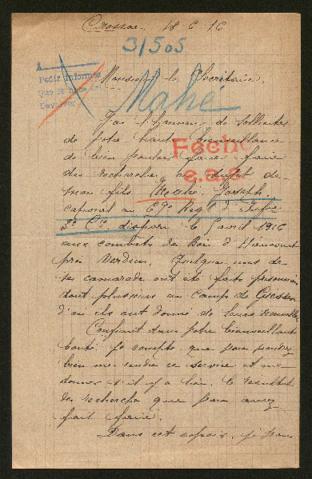 Crossac 18-6-16
31505
Pedir informes
Monsieur le Secrétaire,
Mahé
J'ai l'honneur de solliciter
de votre haute bienveillance
de bien vouloir faire faire
Fecho
des recherches au sujet de
mon fils Mahé Joseph
caporal au 69e Regt d'Infie
Cie disparu le avril 1916
aux combats du Bois d'
près Verdun. Quelques uns de
ses camarades ont été faits prisonniers
dont plusieurs au camp de Giessen
d'où ils ont donné de leurs nouvelles
Confiant dans votre bienveillante
bonté, je compte que vous voudrez
bien me rendre ce service et me
donner s'il y a lieu, le résultat
des recherches que vous aurez
fait faire.
Dans cet espoir, je vous